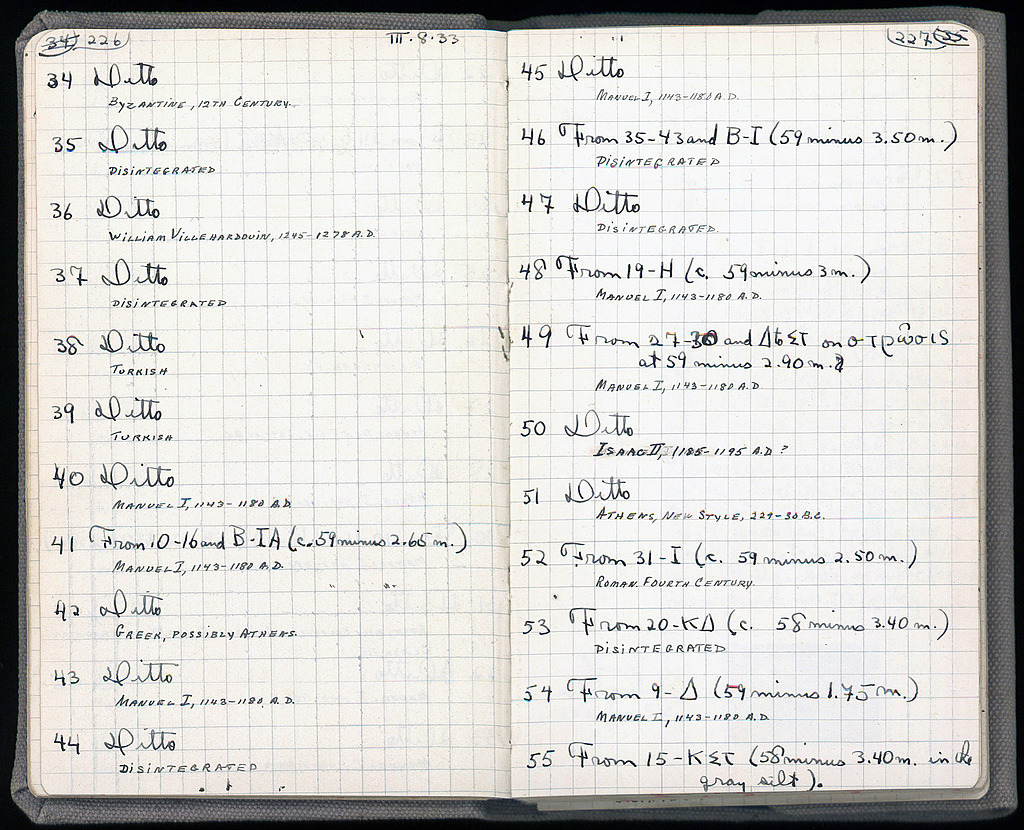 34 226
III.8.33
34 Ditto
BYZANTINE, 12TH CENTURY.
35 Ditto
DISINTEGRATED
36 Ditto
WILLIAM VILLEHARDOUIN, 1245-1278 A.D.
37 Ditto
DISINTEGRATED
38 Ditto
TURKISH
39 Ditto
TURKISH
40 Ditto
MANUEL I, 1143-1180 A.D.
41 From 10-16 and B-IA (c. 59 minus 2.65 m.)
MANUEL I, 1143-1180 A.D.
42 Ditto
GREEK, POSSIBLY ATHENS.
43 Ditto
MANUEL I, 1143-1180. A.D.
44 Ditto
DISINTEGRATED
227 35
45 Ditto
MANUEL I, 1143-1180 A.D.
46 From 35-43 and B-I (59 minus 3.50 m.)
DISINTEGRATED
47 Ditto
DISINTEGRATED.
48 From 19-H (c. 59 minus 3 m.)
MANUEL I, 1143-1180 A.D.
49 From 27-30 and Δ to ΣΤ on στρῶσις
at 59 minus 2.90 m.
MANUEL I, 1143-1180 A.D.
50 Ditto
ISAAC II, 1185-1195 A.D ?
51 Ditto
ATHENS, NEW STYLE, 229-30 B.C.
52 From 31-I (c. 59 minus 2.50 m.)
ROMAN. FOURTH CENTURY.
53 From 20-KΔ (c. 58 minus 3.40 m.)
DISINTEGRATED
54 From 9-Δ (59 minus 1.75 m.)
MANUEL I, 1143-1180 A.D.
55 From 15-KΣΤ (58 minus 3.40 m. in the
gray silt).